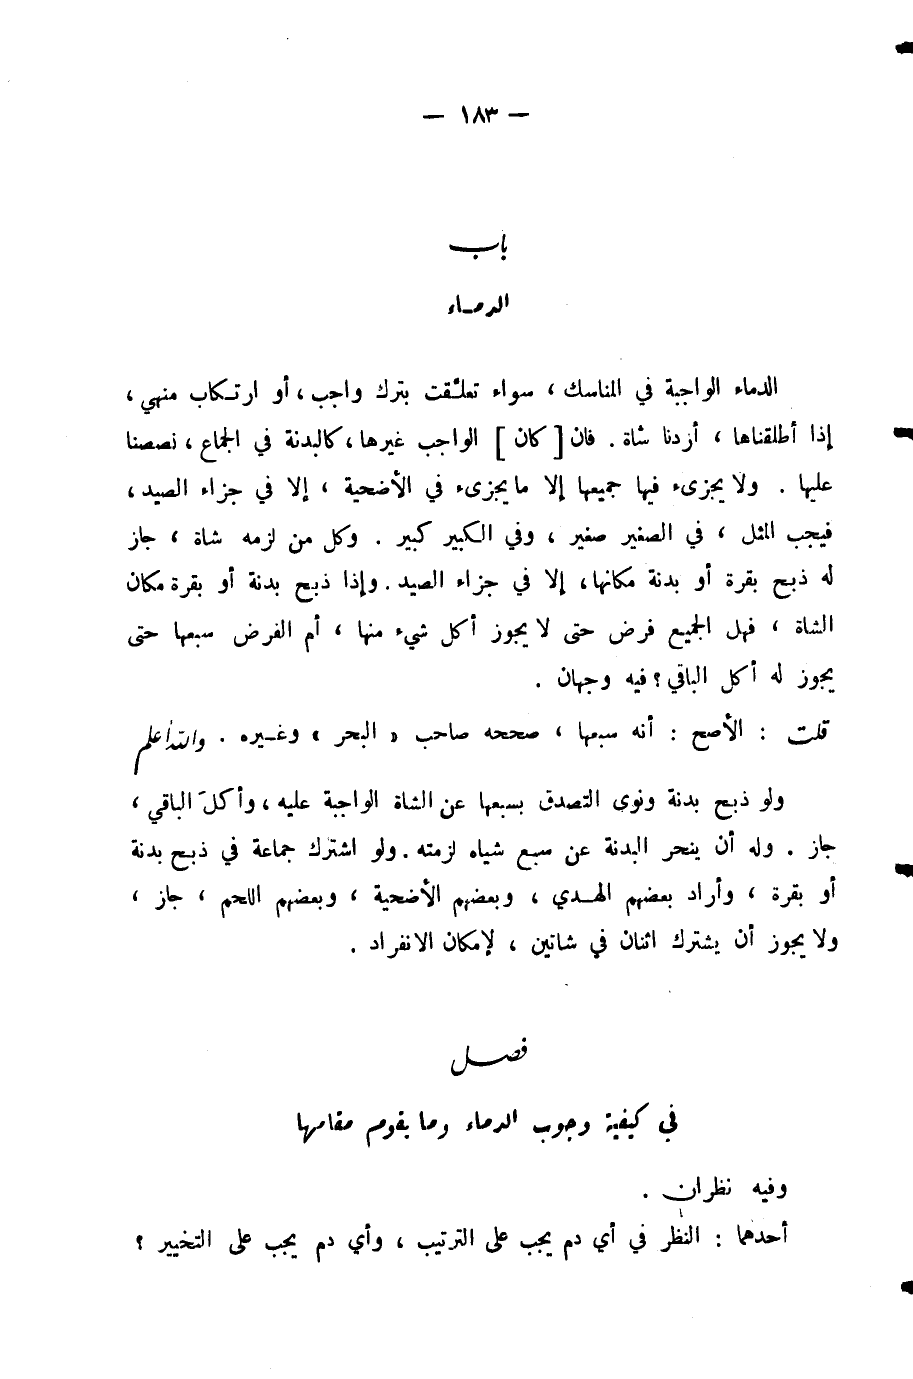 — ١٨٣ —
باب
الدماء
الدماء الواجبة في المناسك ، سواء تعلَّقت بترك واجب ، أو ارتكاب منهي ،
إذا أطلقناها ، أردنا شاة . فان [ كان ] الواجب غيرها ، كالبدنة في الجماع ، نصصنا
عليها . ولا يجزىء فيها جميعها إلا ما يجزىء في الأضحية ، إلا في جزاء الصيد ،
فيجب المثل ، في الصغير صغير ، وفي الكبير كبير . وكل من لزمه شاة ، جاز
له ذبح بقرة أو بدنة مكانها ، إلا في جزاء الصيد . وإذا ذبح بدنة أو بقرة مكان
الشاة ، فهل الجميع فرض حتى لا يجوز أكل شيء منها ، أم الفرض سبعها حتى
يجوز له أكل الباقي ؟ فيه وجهان .
قلت : الأصح : أنه سبعها ، صححه صاحب « البحر » وغيره . والله أعلم
ولو ذبح بدنة ونوى التصدق بسبعها عن الشاة الواجبة عليه ، وأكلَ الباقي ،
جاز . وله أن ينحر البدنة عن سبع شياه لزمته . ولو اشترك جماعة في ذبح بدنة
أو بقرة ، وأراد بعضهم الهدي ، وبعضهم الأضحية ، وبعضهم اللحم ، جاز ،
ولا يجوز أن يشترك اثنان في شاتين ، لإمكان الانفراد .
فصل
في كيفية وجوب الدماء وما يقوم مقامها
وفيه نظران .
أحدهما : النظر في أي دم يجب على الترتيب ، وأي دم يجب على التخيير ؟